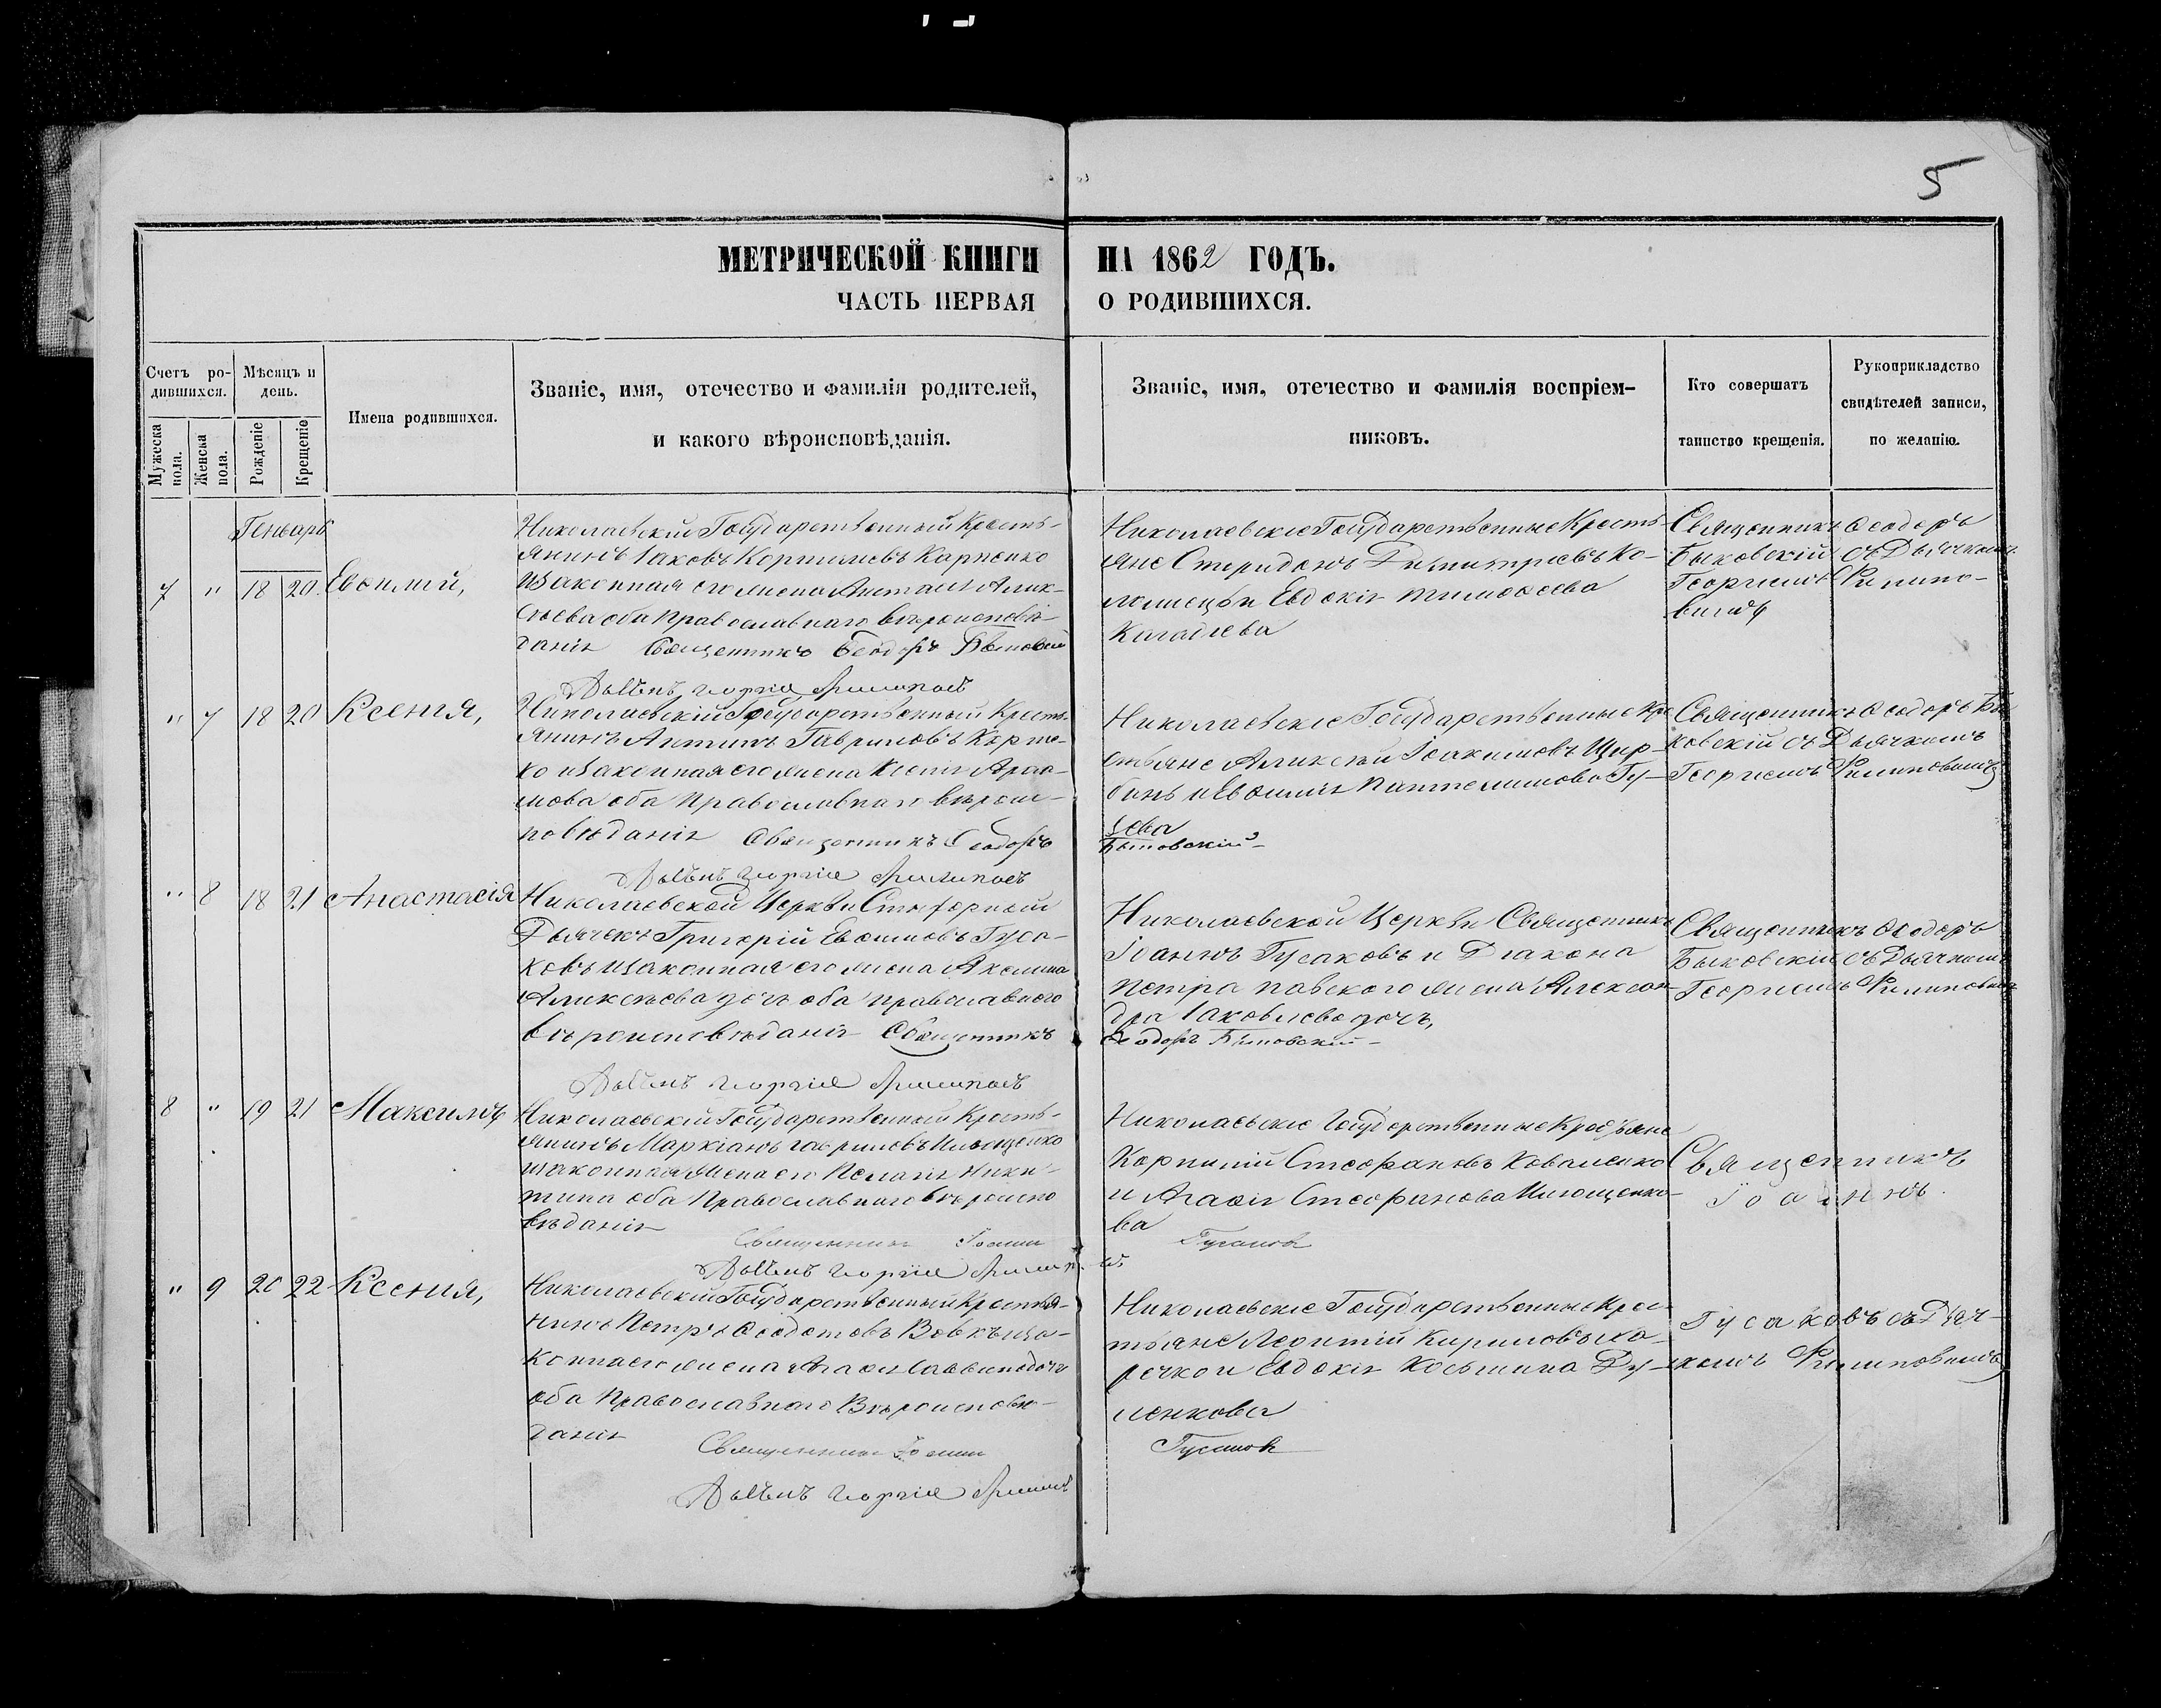 5
МЕТРИЧЕСКОЙ КНИГИ НА 1862 ГОДЪ.
ЧАСТЬ ПЕРВАЯ О РОДИВШИХСЯ.
Счетъ родившихся.
Мужеска пола.
Женска пола.
Мѣсяцъ и день.
Рожденіе
Крещеніе
Имена родившихся.
Званіе, имя, отечество и фамилія родителей,
и какого вѣроисповѣданія.
Званіе, имя, отечество и фамилія воспріем-
никовъ.
Кто совершатъ
таинство крещенія.
Рукоприкладство
свидѣтелей записи,
по желанію.
Генварь
7 " 18 20 Евѳимій,
Николаевскій Государственный Кресть-
янинъ Іаковъ Корниліевъ Карпенко
и законная его жена Алек-
сѣева оба православнаго вѣроисповѣ-
данія Священникъ Ѳеодоръ Быковскій
Дьячекъ Георгій Филиповъ
Николаевскіе Государственные Кресть-
яне Спиридонъ Димитріевъ Ко-
ломіецъ и Евдокія Тимоѳеева
Священникъ Ѳеодоръ
Быковскій съ Дьячкомъ
Георгіемъ Филипо-
вимъ
" 7 18 20 Ксенія,
Николаевскій Государственный Кресть-
янинъ Антинъ Гавриловъ
ко и законная его жена Ксенія
мова оба православнаго вѣроис-
повѣданія Священникъ Ѳеодоръ
Дьячекъ Георгій Филиповъ
Николаевскіе Государственные Кре
стьяне Алексѣй Іоакимовъ Щер-
бань и Евѳимія Пантелимонова Гу-
Быковскій
Священникъ Ѳеодоръ Бы
ковскій съ Дьячкомъ
Георгіемъ Филиповимъ
" 8 18 21 Анастасія
Николаевской Церкви
Дьячекъ Григорій Евѳимовъ Гуса-
ковъ и законная его жена Акелина
Алексѣева дочь оба православнаго
вѣроисповѣданія Священникъ
Дьячекъ Георгій Филиповъ
Николаевской Церкви Священникъ
Іоаннъ Гусаковъ и Діакона
Петра жена Алексан
дра Іаковлева дочь,
Ѳеодоръ Быковскій
Священникъ Ѳеодоръ
Быковскій съ Дьячкомъ
Георгіемъ Филиповимъ
8 " 19 21 Максимъ
Николаевскій Государственный Кресть-
янинъ Маркіанъ Гавриловъ Ильющенко
и законная жена его Пелагія Ники-
тина оба Православнаго вѣроиспо
вѣданія
Священникъ Іоаннъ
Дьячекъ Георгій
Николаевскіе Государственные
Корнилій Стефановъ Коваленко
и Агафія Стефанова Ильющенко-
ва
Гусаковъ
Священникъ
Іоаннъ
" 9 20 22 Ксенія,
Николаевскій Государственный Крестья-
нинъ Петръ Ѳеодотовъ Вовкъ и за-
конна его жена Агафія Саввина дочь
оба Православнаго Вѣроисповѣ-
данія
Священникъ Іоаннъ
Дьячекъ Георгій
Николаевскіе Государственные Крес-
тьяне Леонтій Кириловъ
и Евдокія Косьмина Ду-
ленкова
Гусаковъ
Гусаковъ съ Дьяч-
комъ Филиповимъ